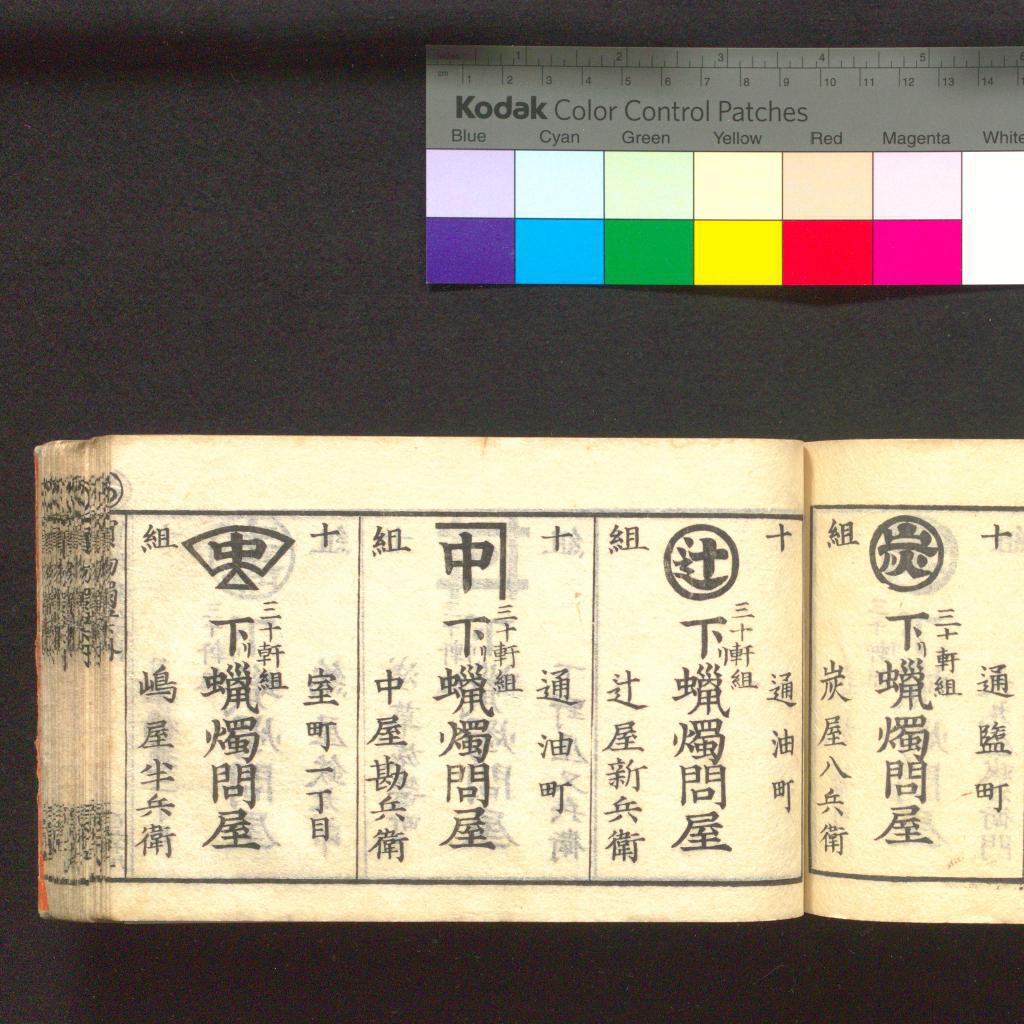 1 2 3 4 5
cm 1 2 3 4 5 6 7 8 9 10 11 12 13 14
Kodak Color Control Patches
Blue Cyan Green Yellow Red Magenta White
十 組
炭
三十軒組
下リ蝋燭問屋
通塩町
炭屋八兵衛
十 組
辻
三十軒組
下リ蝋燭問屋
通油町
辻屋新兵衛
十 組
中
三十軒組
下リ蝋燭問屋
通油町
中屋勘兵衛
十 組
三十軒組
下リ蝋燭問屋
室町一丁目
嶋屋半兵衛